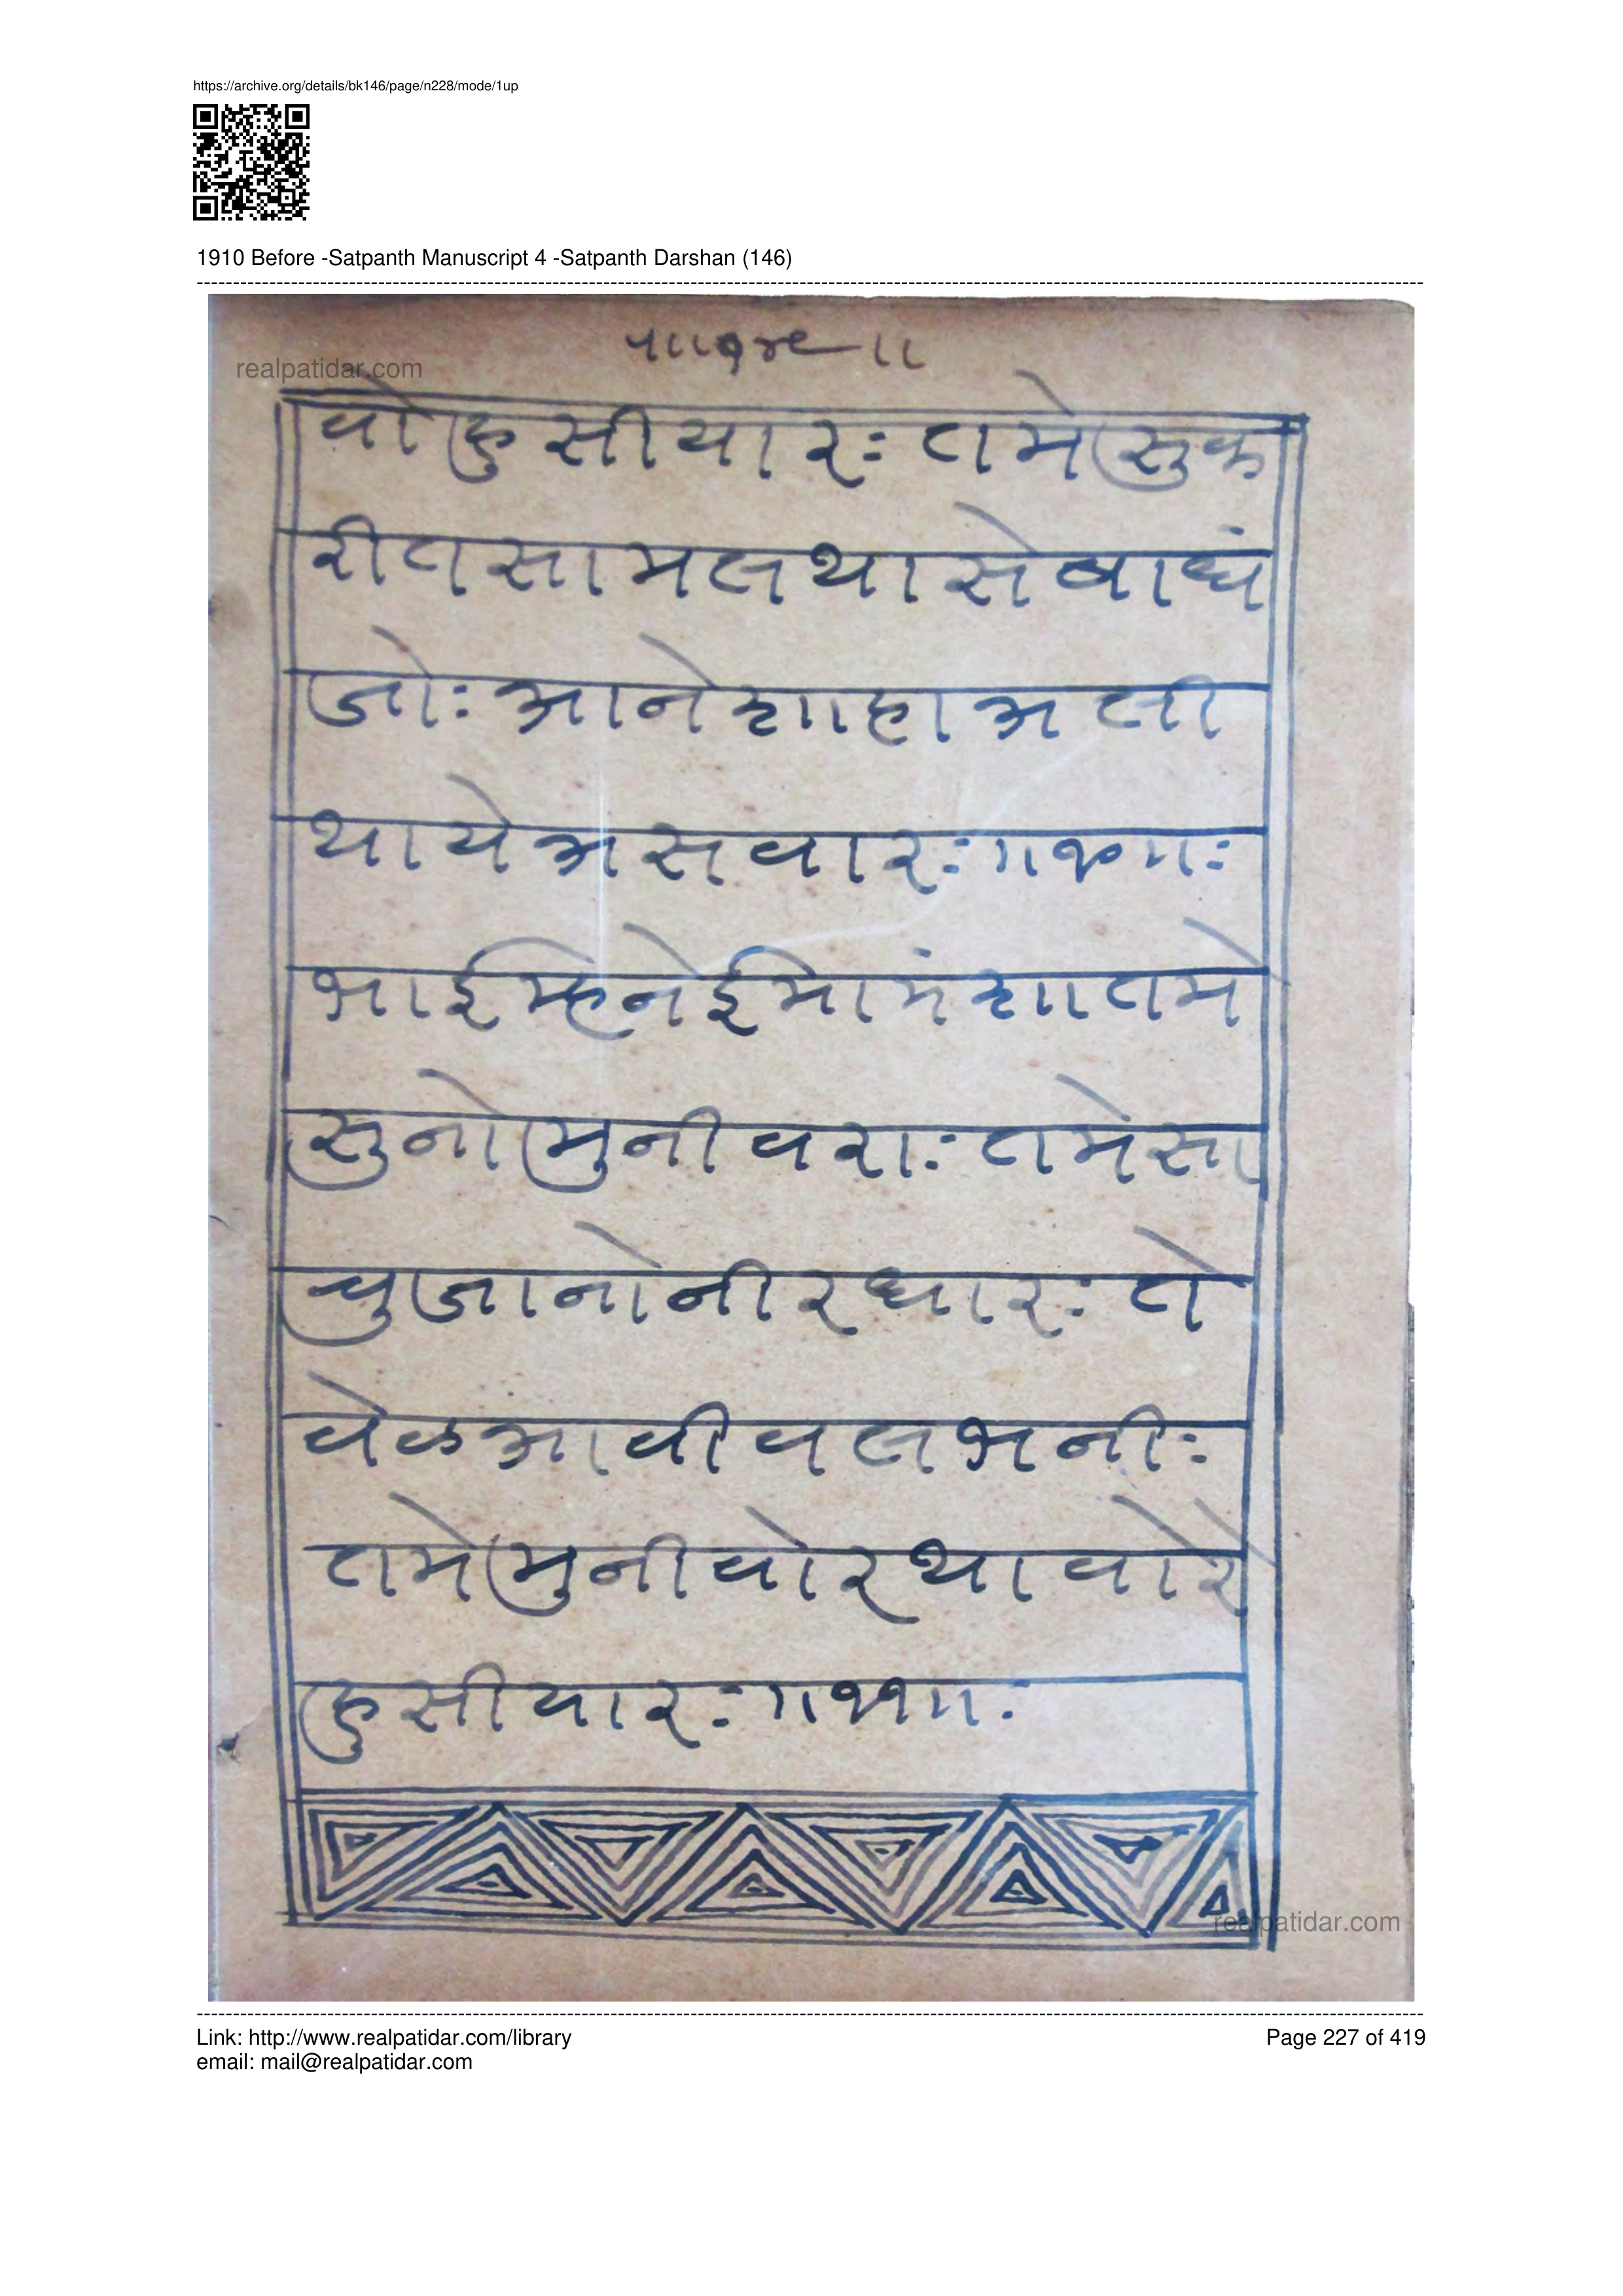 https://archive.org/details/bk146/page/n228/mode/1up
1910 Before -Satpanth Manuscript 4 -Satpanth Darshan (146)
realpatidar.com
वो हुसीयार: तमे सुक
रीत सामल था से बाधं
जो: आने शाहा अली
थाये असवार: ॥१०॥:
भाई म्हने ईमामं शा तमे
सुनो मुनीवरा: तमे सा
चु जानो नीरधार: ते
वेळ आवी वल भनी:
तमे मुनीवोर थावोरे
हुसीयार: ॥११॥:
realpatidar.com
Link: http://www.realpatidar.com/library
Page 227 of 419
email: mail@realpatidar.com